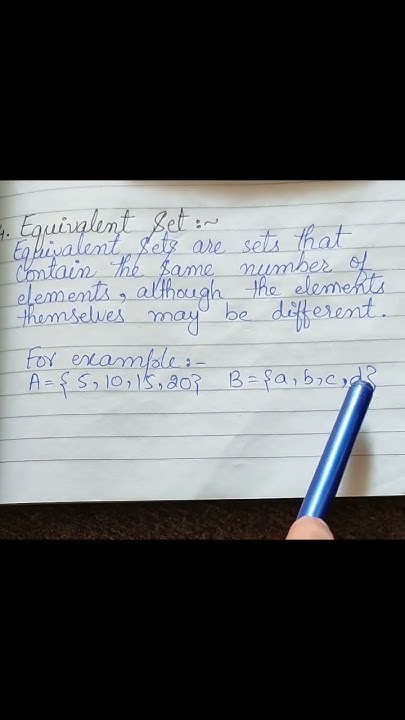 4. Equivalent Set :~
Equivalent Sets are sets that
contain the same number of
elements, although the elements
themselves may be different.
For example :-
A = { 5, 10, 15, 20} B = {a, b, c, d}